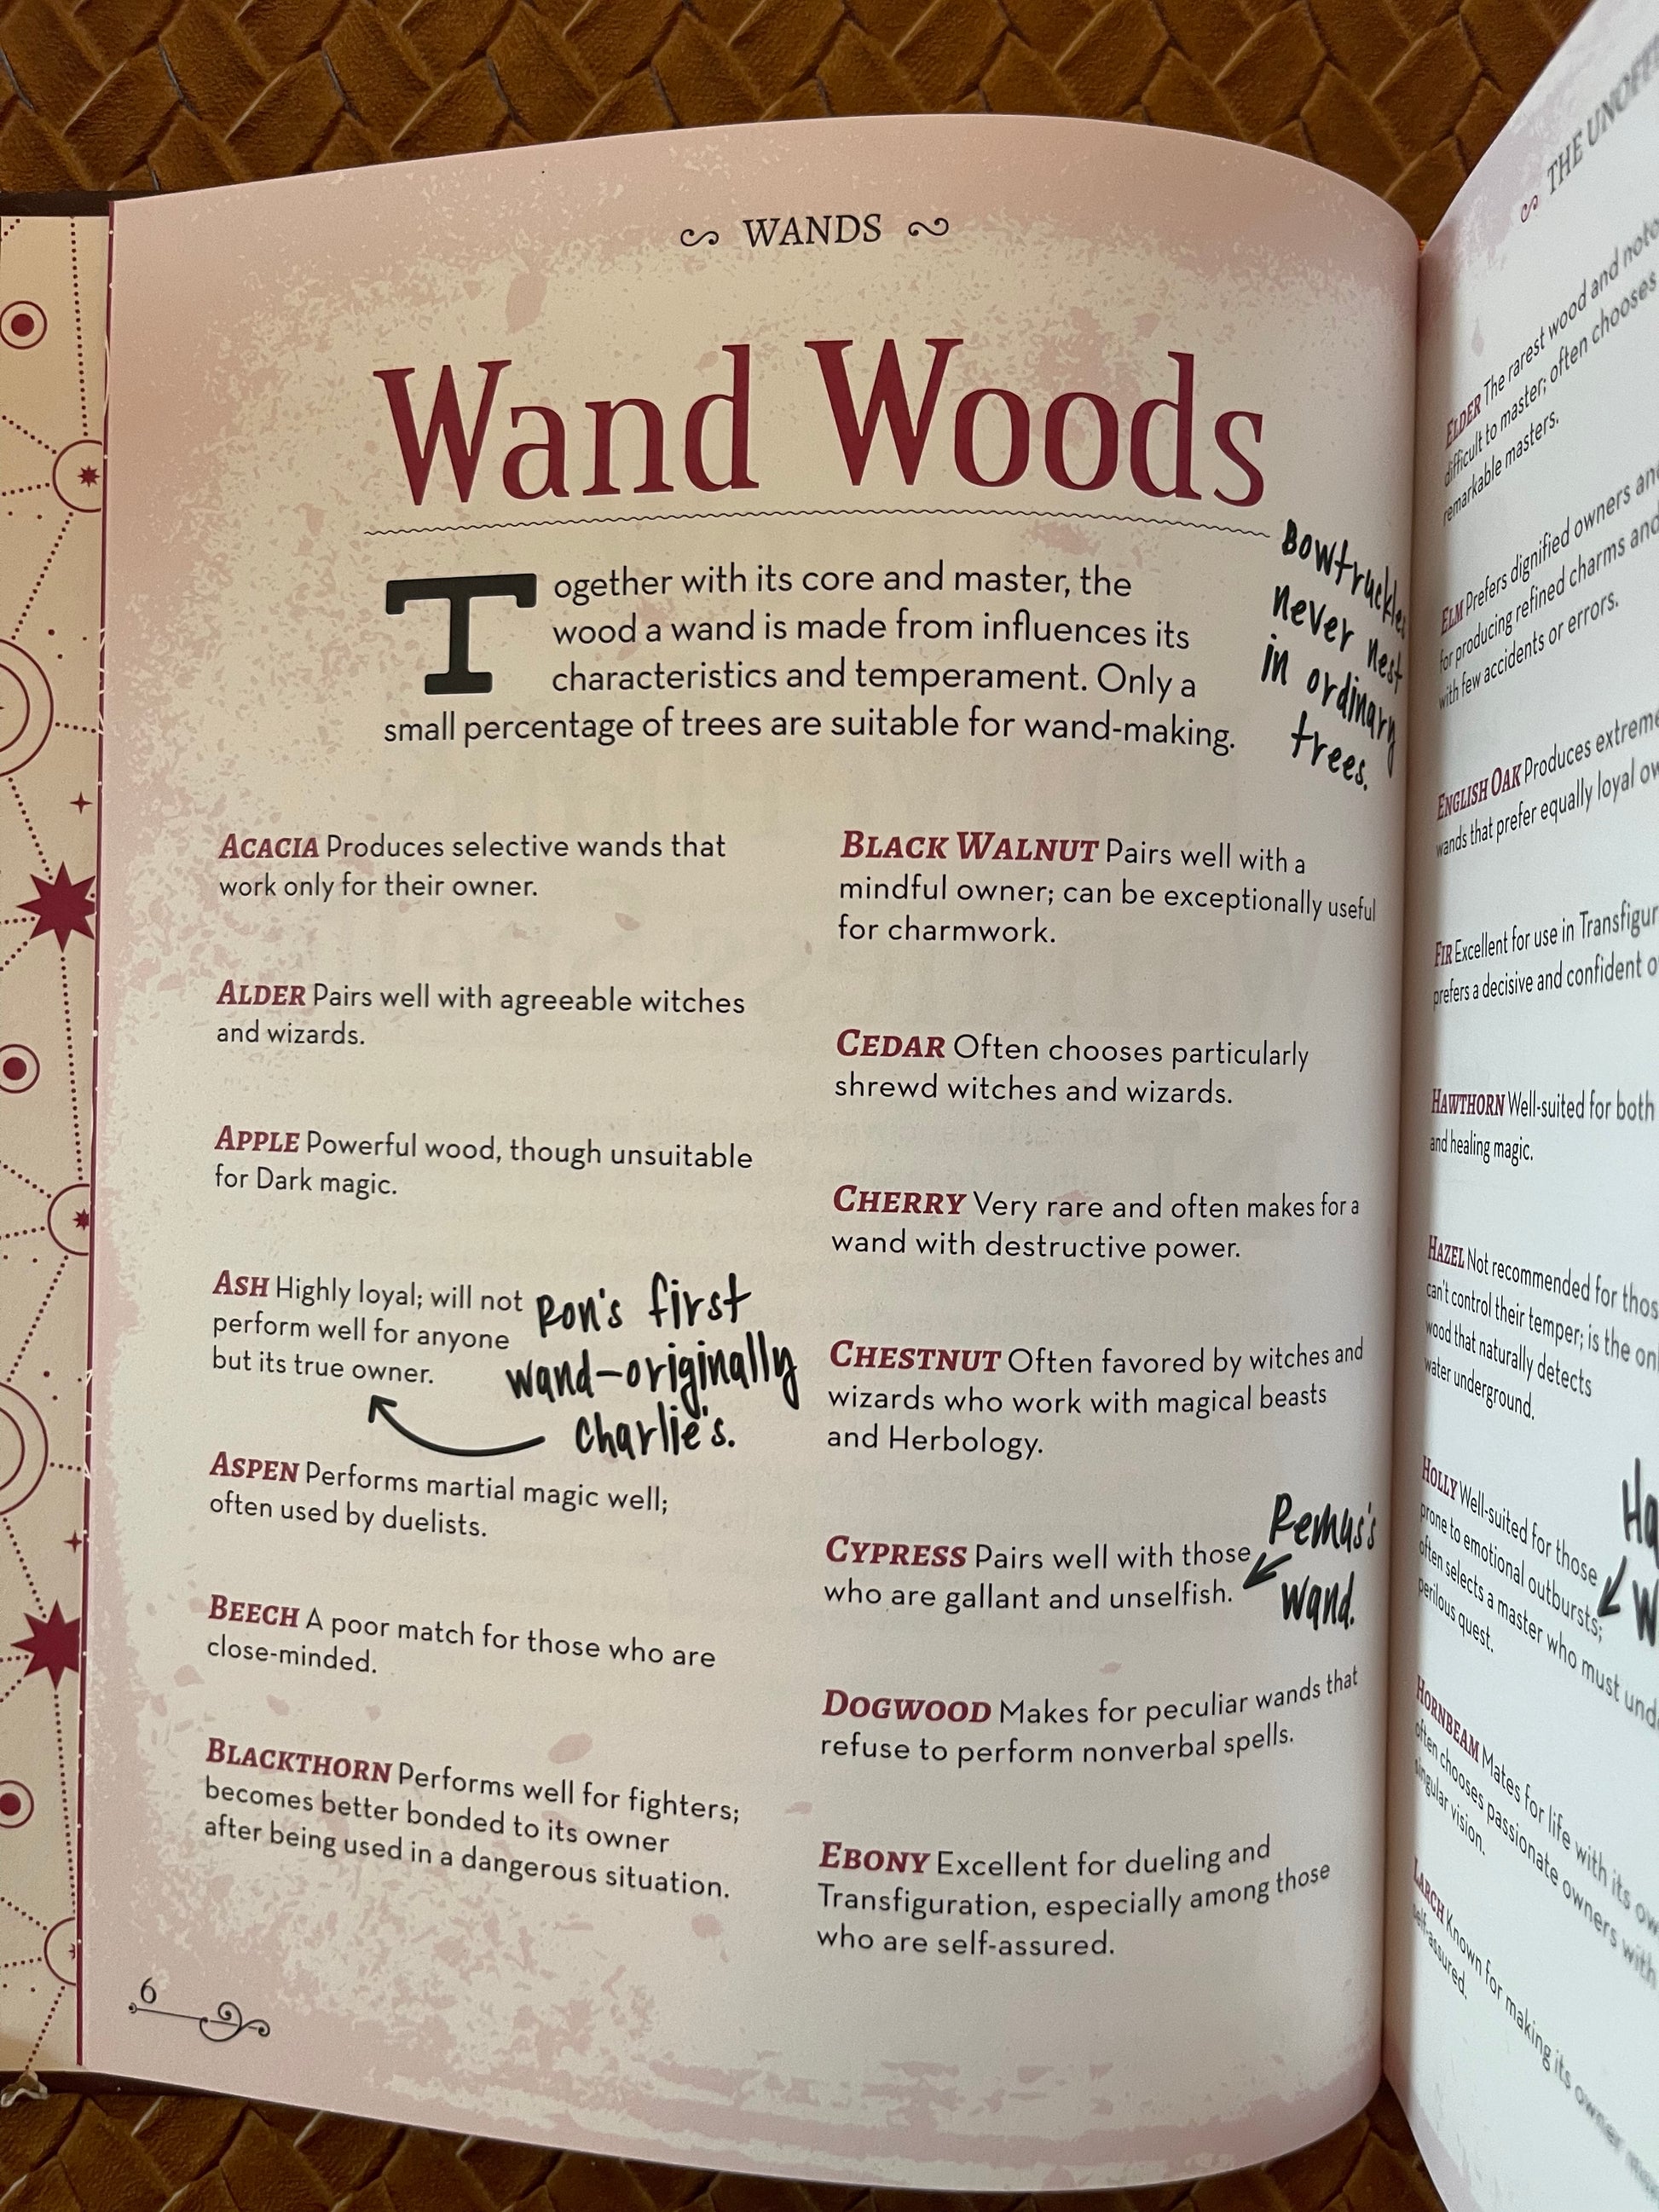 WANDS
Wand Woods
Together with its core and master, the
wood a wand is made from influences its
characteristics and temperament. Only a
small percentage of trees are suitable for wand-making.
Bowtruckles
never nest
in ordinary
trees.
ACACIA Produces selective wands that
work only for their owner.
ALDER Pairs well with agreeable witches
and wizards.
APPLE Powerful wood, though unsuitable
for Dark magic.
ASH Highly loyal; will not
perform well for anyone
but its true owner.
Ron's first
wand-originally
Charlie's.
ASPEN Performs martial magic well;
often used by duelists.
BEECH A poor match for those who are
close-minded.
BLACKTHORN Performs well for fighters;
becomes better bonded to its owner
after being used in a dangerous situation.
BLACK WALNUT Pairs well with a
mindful owner; can be exceptionally useful
for charmwork.
CEDAR Often chooses particularly
shrewd witches and wizards.
CHERRY Very rare and often makes for a
wand with destructive power.
CHESTNUT Often favored by witches and
wizards who work with magical beasts
and Herbology.
CYPRESS Pairs well with those
who are gallant and unselfish.
Remus's
wand.
DOGWOOD Makes for peculiar wands that
refuse to perform nonverbal spells.
EBONY Excellent for dueling and
Transfiguration, especially among those
who are self-assured.
6
THE
ELDER The rarest wood and
difficult to master; often chooses
remarkable masters.
ELM Prefers dignified owners
for producing refined charms and
with few accidents or errors.
ENGLISH OAK Produces
wands that prefer equally loyal
FIR Excellent for use in
prefers a decisive and confident
HAWTHORN Well-suited for both
and healing magic.
HAZEL Not recommended for
can't control their temper; is the
wood that naturally detects
water underground.
HOLLY Well-suited for those
prone to emotional outbursts;
often selects a master who must
perilous quest.
HORNBEAM Mates for life with its
often chooses passionate owners with
singular vision.
LARCH Known for making its owner
self-assured.